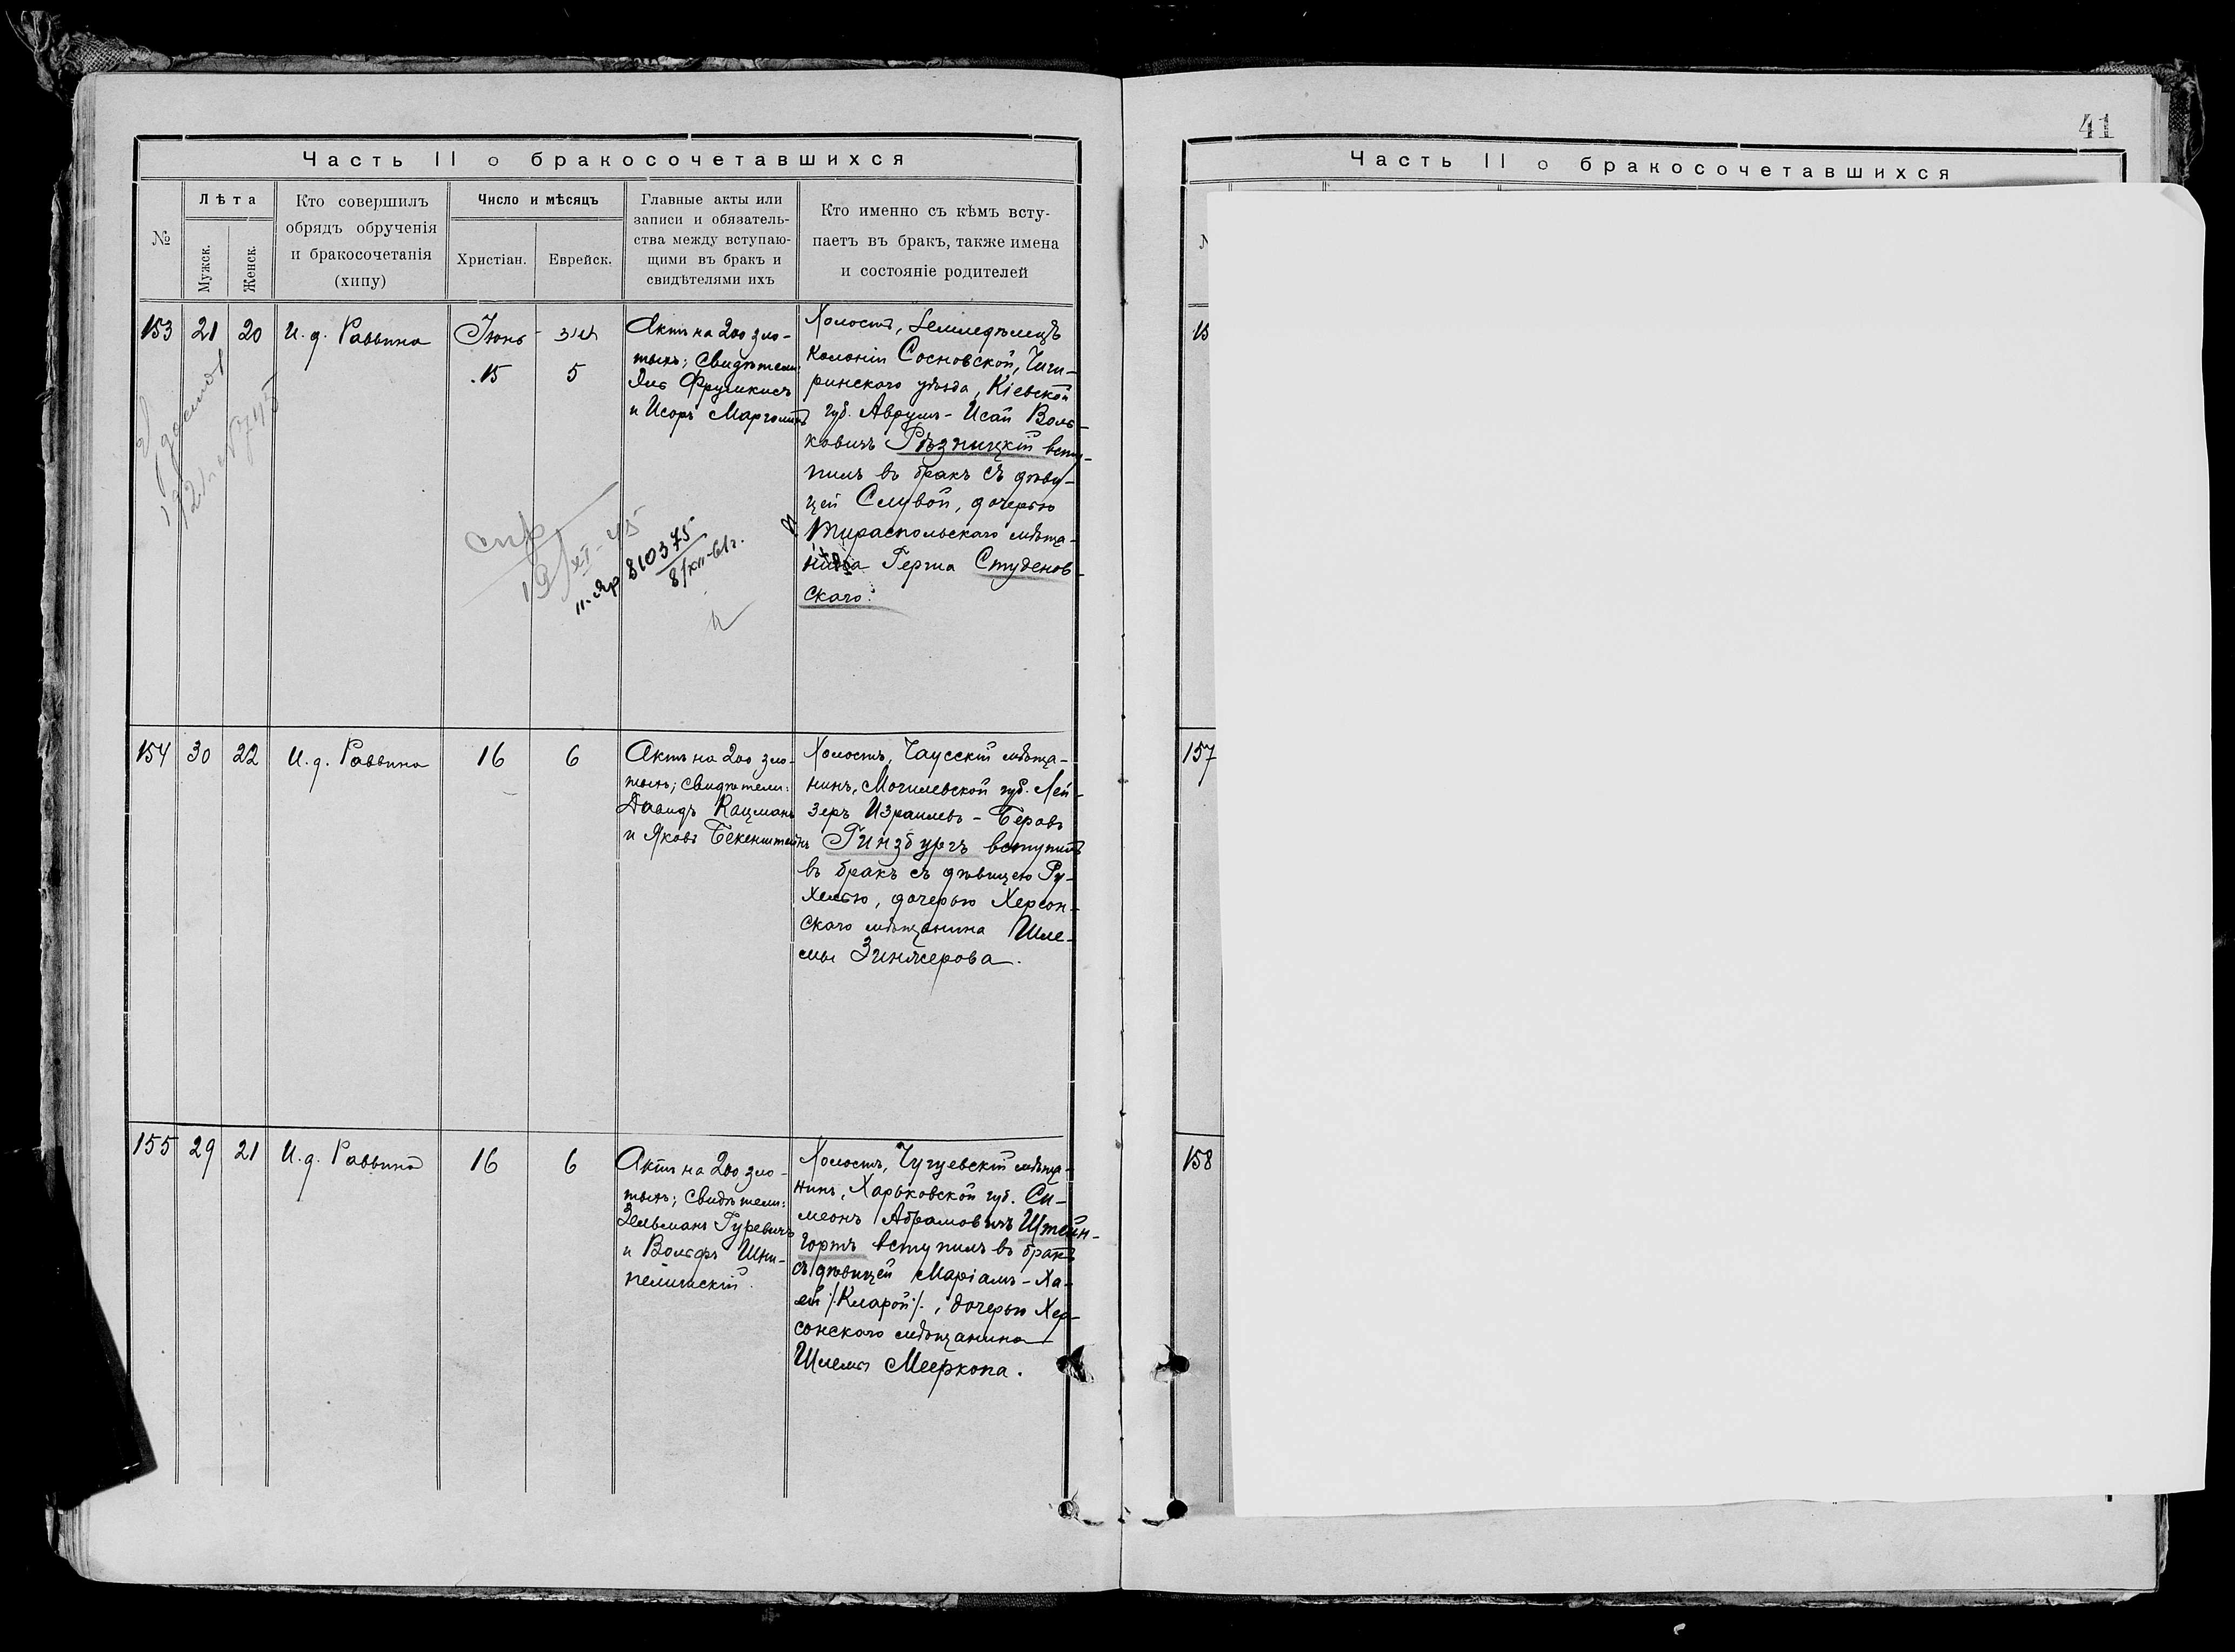 Часть II о бракосочетавшихся
№
Лѣта
Мужск.
Женск.
Кто совершилъ
обрядъ обрученія
и бракосочетанія
(хипу)
Число и мѣсяцъ
Христіан.
Еврейск.
Главные акты или
записи и обязатель-
ства между вступаю-
щими въ бракъ и
свидѣтелями ихъ
Кто именно съ кѣмъ всту-
паетъ въ бракъ, также имена
и состояніе родителей
153
21
20
И. д. Раввина
Іюнь
15
5
Актъ на 200 зло-
тыхъ; свидѣтели
Фрумкисъ
и Исоръ Марголитъ
Холостъ, Земледѣлецъ
колоніи Сосновской, Чиги-
ринскаго уѣзда, Кіевской
губ. Аврумъ-Исай Воль-
ковичъ Рѣзницкій всту-
пилъ въ бракъ съ дѣви-
цей Слувой, дочерью
Тираспольскаго мѣща-
нина Герша Студенов-
скаго.
спр.
19/XI-45
II-Яр 810375
8/XII-61г.
154
30
22
И. д. Раввина
16
6
Актъ на 200 зло-
тыхъ; свидѣтели:
Давидъ Кацманъ
и Яковъ Бекенштейнъ
Холостъ, Чаусскій мѣща-
нинъ, Могилевской губ. Лей-
зеръ Израилевъ-Беровъ
Гинзбургъ вступилъ
въ бракъ съ дѣвицею Ру-
хелью, дочерью Херсон-
скаго мѣщанина Шле-
мы Зинжерова.
155
29
21
И. д. Раввина
16
6
Актъ на 200 зло-
тыхъ; свидѣтели:
Зельманъ Гуревичъ
и Вольфъ Шни-
пелишскій.
Холостъ, Чугуевскій мѣща-
нинъ, Харьковской губ. Си-
меонъ Абрамовичъ Штейн-
гортъ вступилъ въ бракъ
съ дѣвицей Маріамъ-Ха-
ей /:Кларой:/, дочерью Хер-
сонскаго мѣщанина
Шлемы Мееркопа.
41
Часть II о бракосочетавшихся
15
157
158